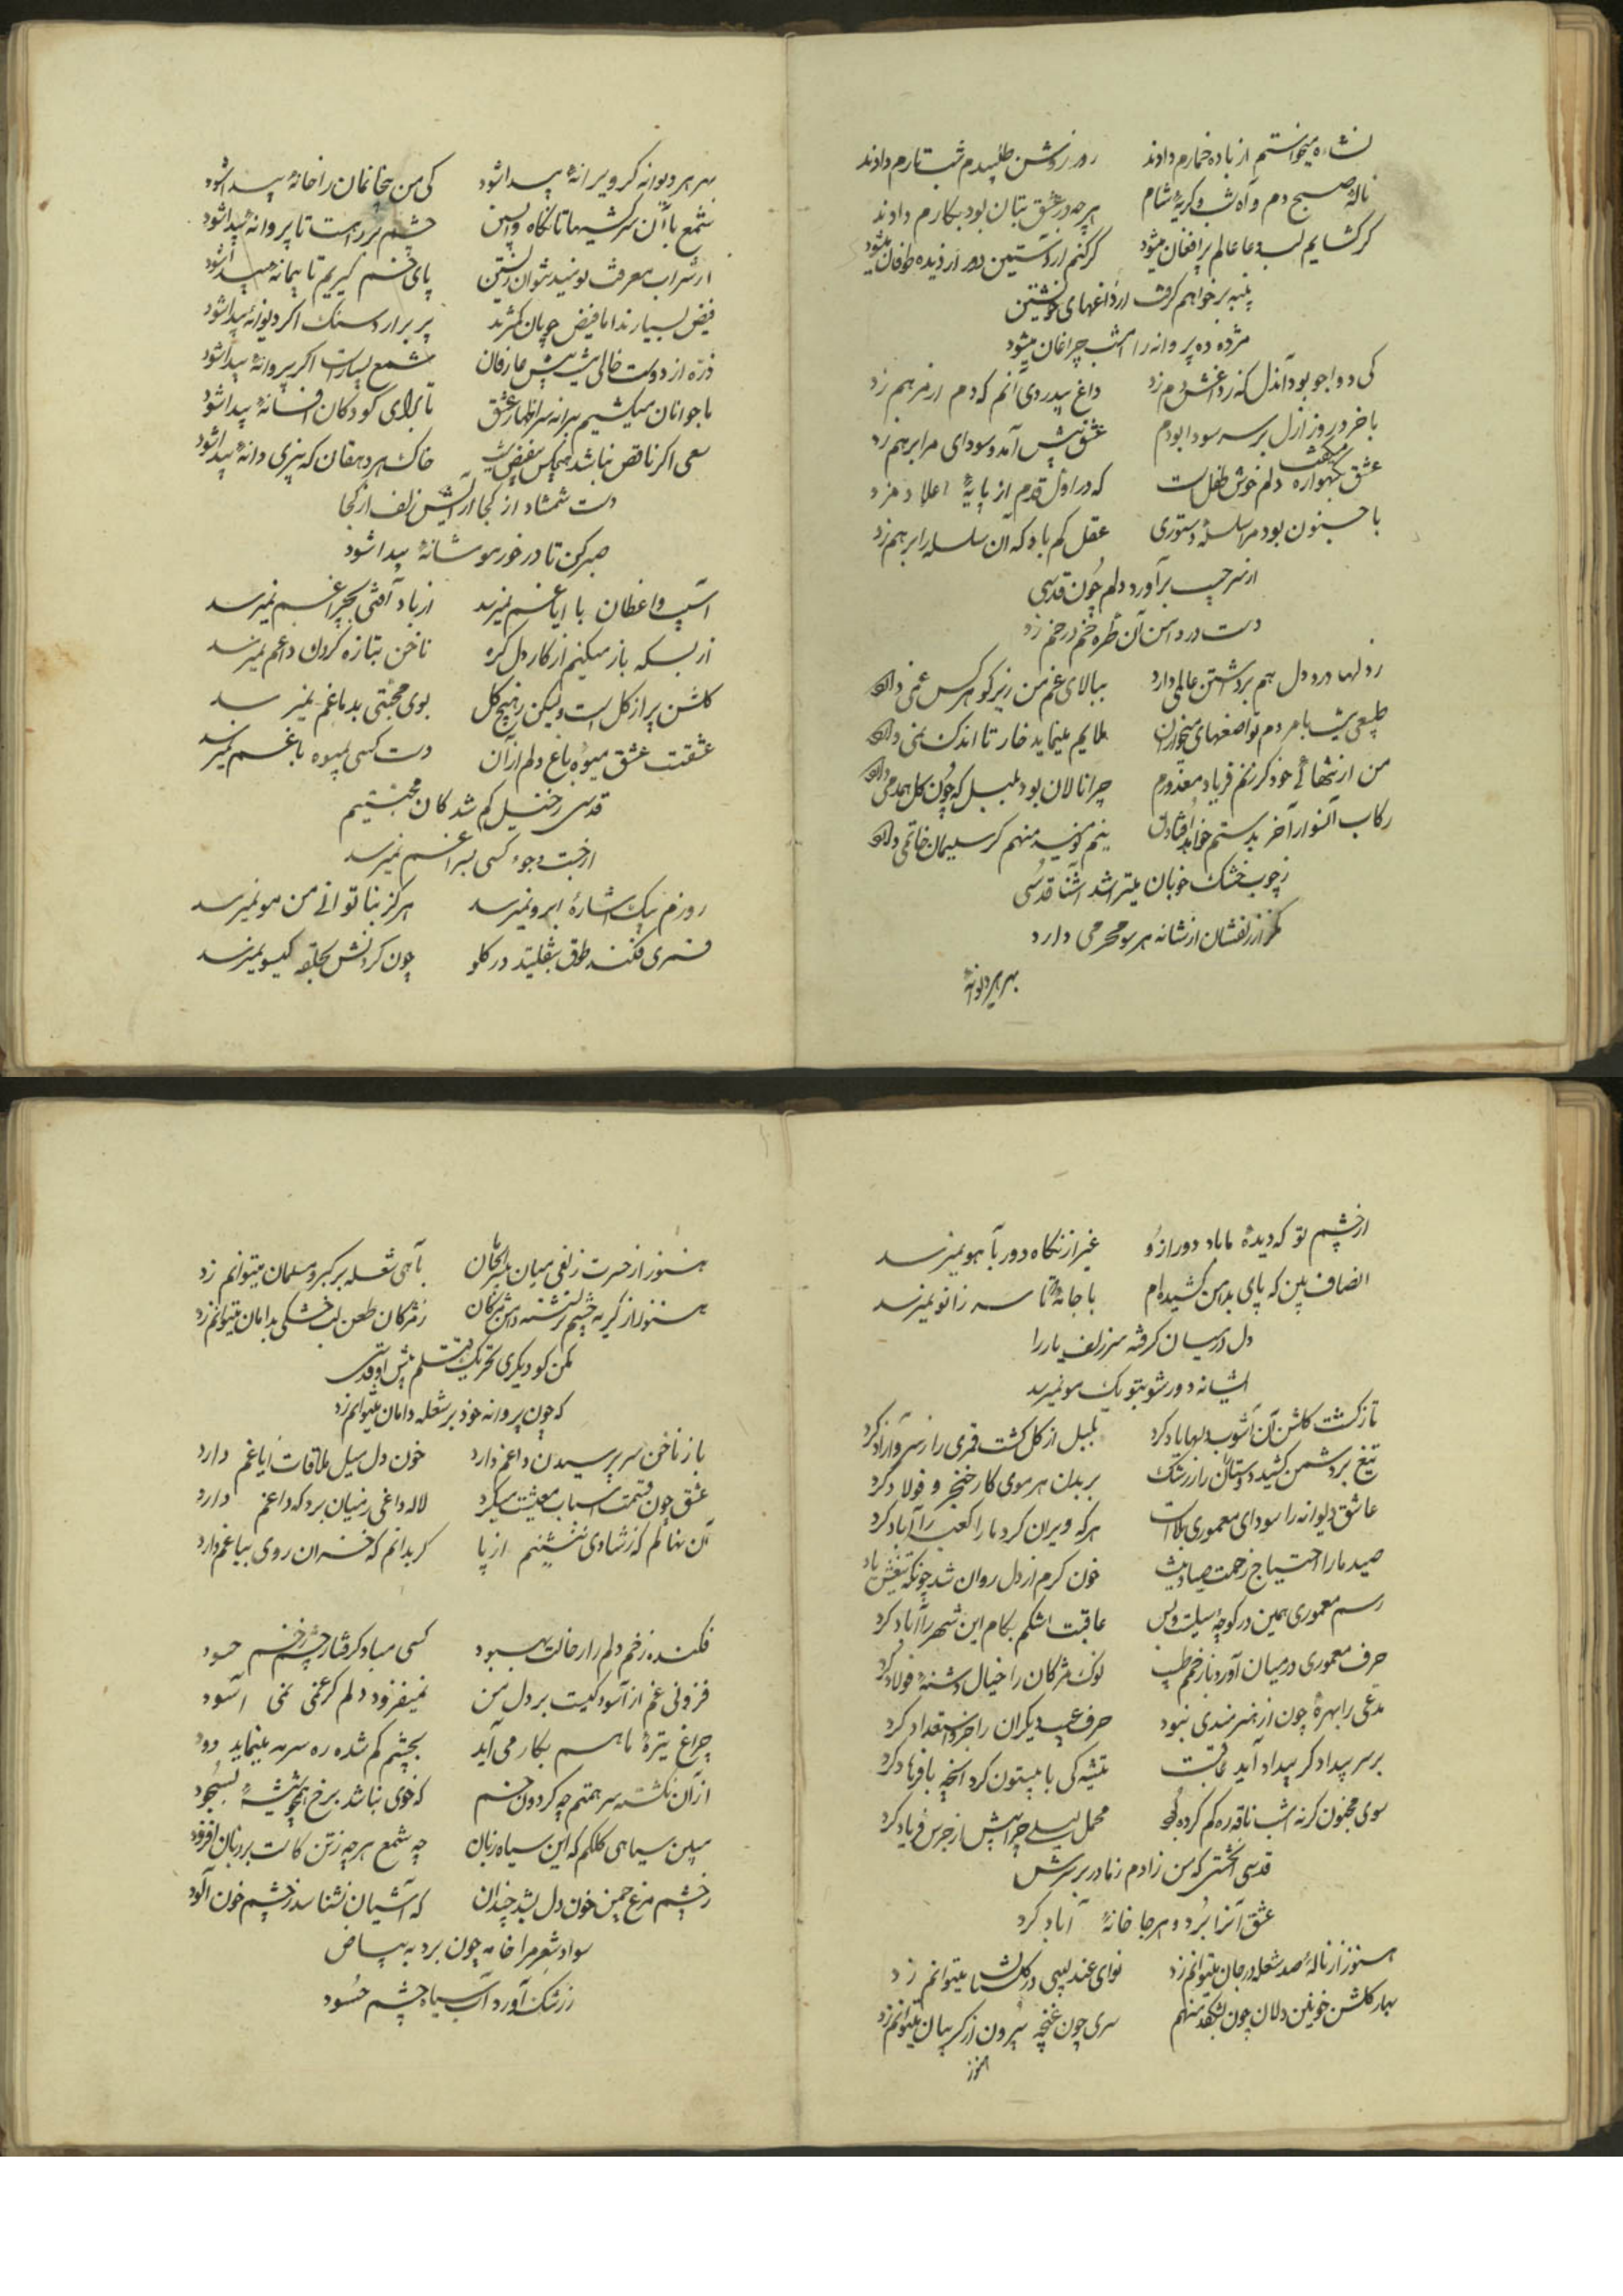 نشاه میخواستم از باده خمارم دادند روز روشن طلبیدم شب تارم دادند
نالهٔ صبح دم و آه شب و کریهٔ شام هرچه در عشق بتان بود بکارم دادند
کر کشایم لب دعا عالم پر افغان میشود کر کنم از آستین دور از دیده طوفان میشود
پنبه بر خواهم کرفت از داغهای خویشتن
مژده ده پروانه را امشب چراغان میشود
کی دواجو بود آندل که زد عشق دم زد داغ بیدردی آنم که دم از مرهم زد
با خرد روز ازل بر سر سودا بودم عشق پیش آمد و سودای مرا برهم زد
عشق کهواره دلم خوش طفل است که در اول قدم از پایهٔ اعلا دم زد
با جنون بود مرا سلسلهٔ دستوری عقل کم باد که آن سلسله را برهم زد
از سر جیب برآورد دلم چون قدسی
دست در دامن آن طره خم در خم زد
ز دلها درد دل هم برداشتن عالمی دارد ببالای غم من زیر کو هر کس غمی دارد
با مردم تواضعهای ملایم مینماید خار تا اندک نمی دارد
من از تنهائی خود کر زنم فریاد معذورم چرا نالان بود بلبل که چون کل همدمی دارد
رکاب آنسوار آخر بدستم خواهد افتادن نیم نومید منهم کر سلیمان خاتمی دارد
ز چوب خشک خوبان میتراشد آشنا قدسی
مکر از زلفشان از شانه هر سو محرمی دارد
بهر هر دیوانهٔ
بهر هر دیوانه کر ویرانهٔ پیدا شود کی من بیخانمان را خانهٔ پیدا شود
شمع با آن سرکشیها تا نکاه واپسین چشم بر راهست تا پروانهٔ پیدا شود
از شراب معرفت نومید نتوان زیستن پای خم کیریم تا پیمانهٔ پیدا شود
فیض بسیارند اما فیض جویان کمترند پر برآرد سنک اکر دیوانهٔ پیدا شود
ذره از دوست خالی نیست پیش عارفان شمع بسیارست اکر پروانهٔ پیدا شود
با جوانان میکشیم پیرانه سر اظهار عشق تا برای کودکان افسانهٔ پیدا شود
سعی اکر ناقص نباشد هیچکس بیفیض نیست خاک هر دهقان که بیزی دانهٔ پیدا شود
دست شمشاد از کجا آرایش زلف از کجا
صبر کن تا در خور مو شانهٔ پیدا شود
آسیب واعظان با ایاغم نمیرسد از باد آفتی بچراغم نمیرسد
از بسکه باز میکنم از کار دل کره ناخن بتازه کردن داغم نمیرسد
کلشن پر از کل است ولیکن ز هیچ کل بوی محبتی بدماغم نمیرسد
عشقست عشق میوهٔ باغ دلم از آن دست کسی بمیوه باغم نمیرسد
قدسی ز خیل کم شد کان محبتیم
از جست و جو کسی بسراغم نمیرسد
روزم بیک اشارهٔ ابرو نمیرسد هرکز بناتوانی من مو نمیرسد
قمری فکند طوق بتقلید در کلو چون کردنش بحلقه کیسو نمیرسد
از چشم تو که دیدهٔ ما باد دور ازو غیر از نکاه دور بآهو نمیرسد
انصاف بین که پای بدامن کشیده‌ام با جامهٔ تا سر زانو نمیرسد
دل در میان کرفته سر زلف یار را
ایشانه دور شو بتو یک مو نمیرسد
تا ز کشت کلشن آن آشوب دلها یاد کرد بلبل از کل کشت قمری را ز سرو آزاد کرد
تیغ بر دشمن کشید و دوستان را ز رشک بر بدن هر موی کار خنجر و فولاد کرد
عاشق دیوانه را سودای معموری بلاست هرکه ویران کرد ما را کعبه را آباد کرد
صید ما را احتیاج زحمت صیاد نیست خون کرم از دل روان شد چونکه تیغش یاد
رسم معموری همین در کوچهٔ سیلست و بس عاقبت اشکم بکام این شهر را آباد کرد
حرف معموری در میان آورد باز زخمم طبیب نوک مژکان را خیال دشنهٔ فولاد کرد
مدعی را بهرهٔ چون از هنرمندی نبود حرف عیب دیکران را جزو استعداد کرد
بر سر بیداد کر بیداد آید عاقبت تیشه کی با بیستون کرد آنچه با فرهاد کرد
سوی مجنون کر نه امشب ناقه ره کم کرده بود محمل لیلی چرا پیش از جرس فریاد کرد
قدسی آنخشتی که من زادم ز مادر بر سرش
عشق آنرا برد و هر جا خانهٔ آباد کرد
هنوز از نالهٔ صد شعله در جان میتوانم زد نوای عندلیبی در کلستان میتوانم زد
بهار کلشن خونین دلان چون بشکفد منهم سری چون غنچه بیرون از کریبان میتوانم زد
هنوز
هنوز از حسرت زلفی میان بلبلان بآهی شعله بر کبر و مسلمان میتوانم زد
هنوز از کریه چشم تر نشسته دامن مژکان ز مژکان طعن لب خشکی بدامان میتوانم زد
مکن کو دیکری تحریک قتلم پیش او قدسی
که چون پروانه خود بر شعله دامان میتوانم زد
باز ناخن سر پرسیدن داغم دارد خون دل میل ملاقات ایاغم دارد
عشق چون قسمت اسباب معیشت میکرد لاله داغی ز میان برد که داغم دارد
آن نهالم که ز شادی ننشینم از پا کر بدانم که خزان روی بباغم دارد
فکنده زخم دلم را ز حالت بهبود کسی مباد کرفتار چشم زخم حسود
فزونی غم از آسودکیست بر دل من نمیفزود دلم کر غمی نمی آسود
چراغ تیرهٔ ما هم بکار می آید بچشم کم شده ره سرمه مینماید دود
از آن نکشته سر همتم چه کردون خم که خوی نباشد برخ همچو شیشهٔ بسجود
مبین سیاهی کلکم که این سیاه زبان چه شمع هرچه ز تن کاست بر زبان افزود
ز چشم مرغ چمن خون دل بشد چندان که آشیان نشناسد ز چشم خون آلود
سواد شعر مرا خامه چون برد به بیاض
ز رشک آورد آب سیاه چشم حسود